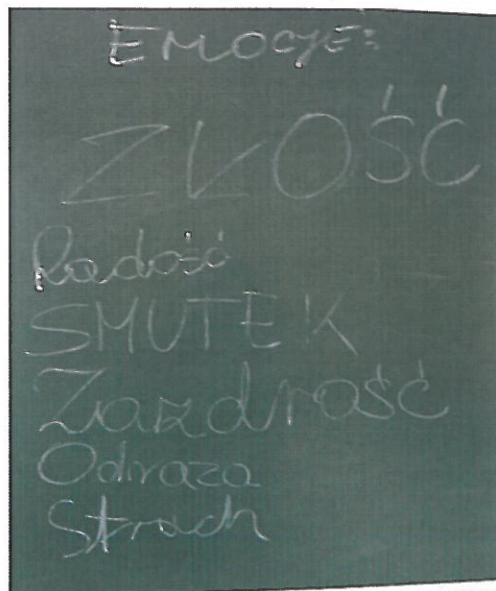 EMOCJE:
ZŁOŚĆ
Radość
SMUTEK
Zazdrość
Odraza
Strach